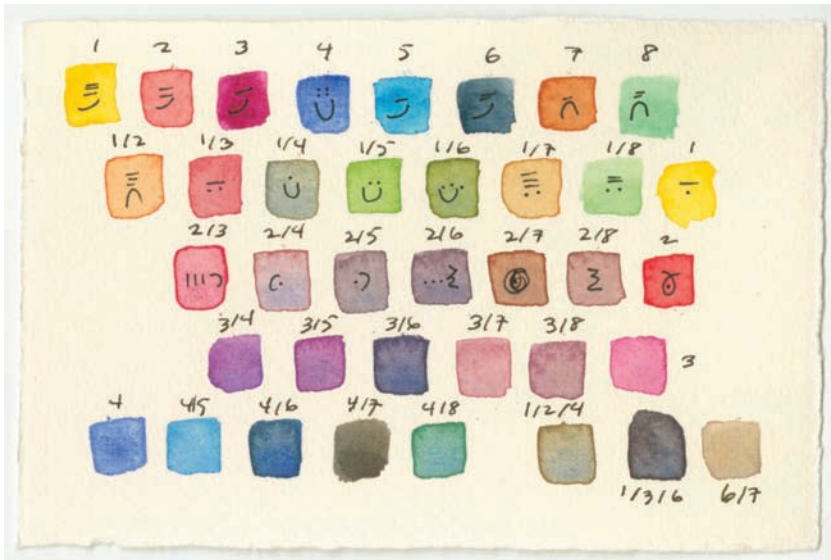 1 2 3 4 5 6 7 8
1/2 1/3 1/4 1/5 1/6 1/7 1/8 1
2/3 2/4 2/5 2/6 2/7 2/8 2
3/4 3/5 3/6 3/7 3/8 3
4 4/5 4/6 4/7 4/8 1/2/4
1/3/6 6/7